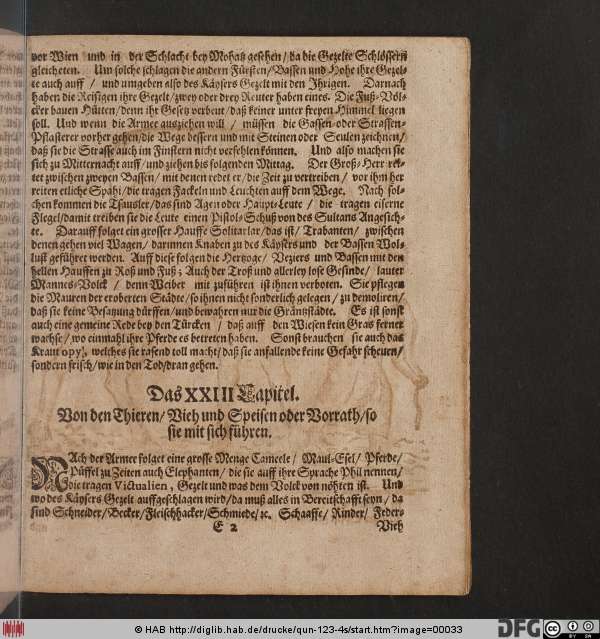 vor Wien und in der Schlacht bey Mohatz gesehen/da die Gezelte Schlössern
gleicheten. Um solche schlagen die andern Fürsten/Bassen und Hohe ihre Gezel-
te auch auff/ und umgeben also des Käysers Gezelt mit den Ihrigen. Darnach
haben die Reisigen ihre Gezelt/zwey oder drey Reuter haben eines. Die Fuß-Völ-
cker bauen Hütten/denn ihr Gesetz verbeut/daß keiner unter freyen Himmel liegen
soll. Und wenn die Armee ausziehen will/ müssen die Gassen oder Strassen-
Pflasterer vorher gehen/die Wege bessern und mit Steinen oder Seulen zeichnen/
daß sie die Strasse auch im Finstern nicht verfehlen können. Und also machen sie
sich zu Mitternacht auff/und ziehen bis folgenden Mittag. Der Groß-Herr rei-
tet zwischen zweyen Bassen/ mit denen redet er/die Zeit zu vertreiben/ vor ihm her
reiten etliche Spahi/die tragen Fackeln und Leuchten auff dem Wege. Nach sol-
chen kommen die Tsausler/das sind Agen oder Haupt-Leute/ die tragen eiserne
Flegel/damit treiben sie die Leute einen Pistol-Schuß von des Sultans Angesich-
te. Darauff folget ein grosser Hauffe Solitarlar/das ist/ Trabanten/ zwischen
denen gehen viel Wagen/darinnen Knaben zu des Käysers und der Bassen Wol-
lust geführet werden. Auff diese folgen die Hertzoge/ Veziers und Bassen mit den
hellen Hauffen zu Roß und Fuß; Auch der Troß und allerley lose Gesinde/ lauter
Mannes-Volck/ denn Weiber mit zuführen ist ihnen verboten. Sie pflegen
die Mauren der eroberten Städte/so ihnen nicht sonderlich gelegen/zu demoliren/
daß sie keine Besatzung dürffen/und bewahren nur die Gräntzstädte. Es ist sonst
auch eine gemeine Rede bey den Türcken/ daß auff den Wiesen kein Gras ferner
wachse/wo einmahl ihre Pferde es betreten haben. Sonst brauchen sie auch das
Kraut opy, welches sie rasend toll macht/daß sie anfallende keine Gefahr scheuen/
sondern frisch/wie in den Tod/dran gehen.
Das XXIII Capitel.
Von den Thieren/ Vieh und Speisen oder Vorrath/so
sie mit sich führen.
NAch der Armee folget eine grosse Menge Cameele/ Maul-Esel/ Pferde/
Püffel zu Zeiten auch Elephanten/ die sie auff ihre Sprache Phil nennen/
die tragen Victualien, Gezelt und was dem Volck von nöhten ist. Und
wo des Käysers Gezelt auffgeschlagen wird/da muß alles in Bereitschafft seyn/ da
sind Schneider/Becker/Fleischhacker/Schmiede/ꝛc. Schaaffe/ Rinder/ Feder-
E 2 Vieh
© HAB http://diglib.hab.de/drucke/qun-123-4s/start.htm?image=00033
DFG cc BY SA